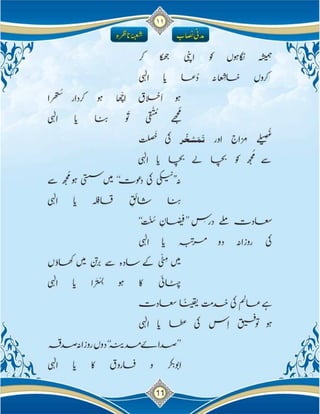 ۱۱
مدنی نصاب
شعبۂ ناظرہ
ہمیشہ نگاہوں کو اپنی جھکا کر
کروں خاشعانہ دُعا یا الٰہی
ہو اَخلاق اچّھا ہو کردار ستھرا
مجھے مُتّقی تُو بنا یا الٰہی
غُصیلے مزاج اور تَمَسْخُر کی خصلت
سے مجھ کو بچا لے بچا یا الٰہی
نہ "نیکی کی دعوت" میں سستی ہو مجھ سے
بنا شائقِ قافلہ یا الٰہی
سعادت ملے درسِ "فیضانِ سُنّت"
کی روزانہ دو مرتبہ یا الٰہی
میں مٹی کے سادہ سے برتن میں کھاؤں
چٹائی کا ہو بسترا یا الٰہی
ہے عالم کی خدمت یقیناً سعادت
ہو توفیق اِس کی عطا یا الٰہی
"صدائے مدینہ" دوں روزانہ صدقہ
ابوبکر و فاروق کا یا الٰہی
11